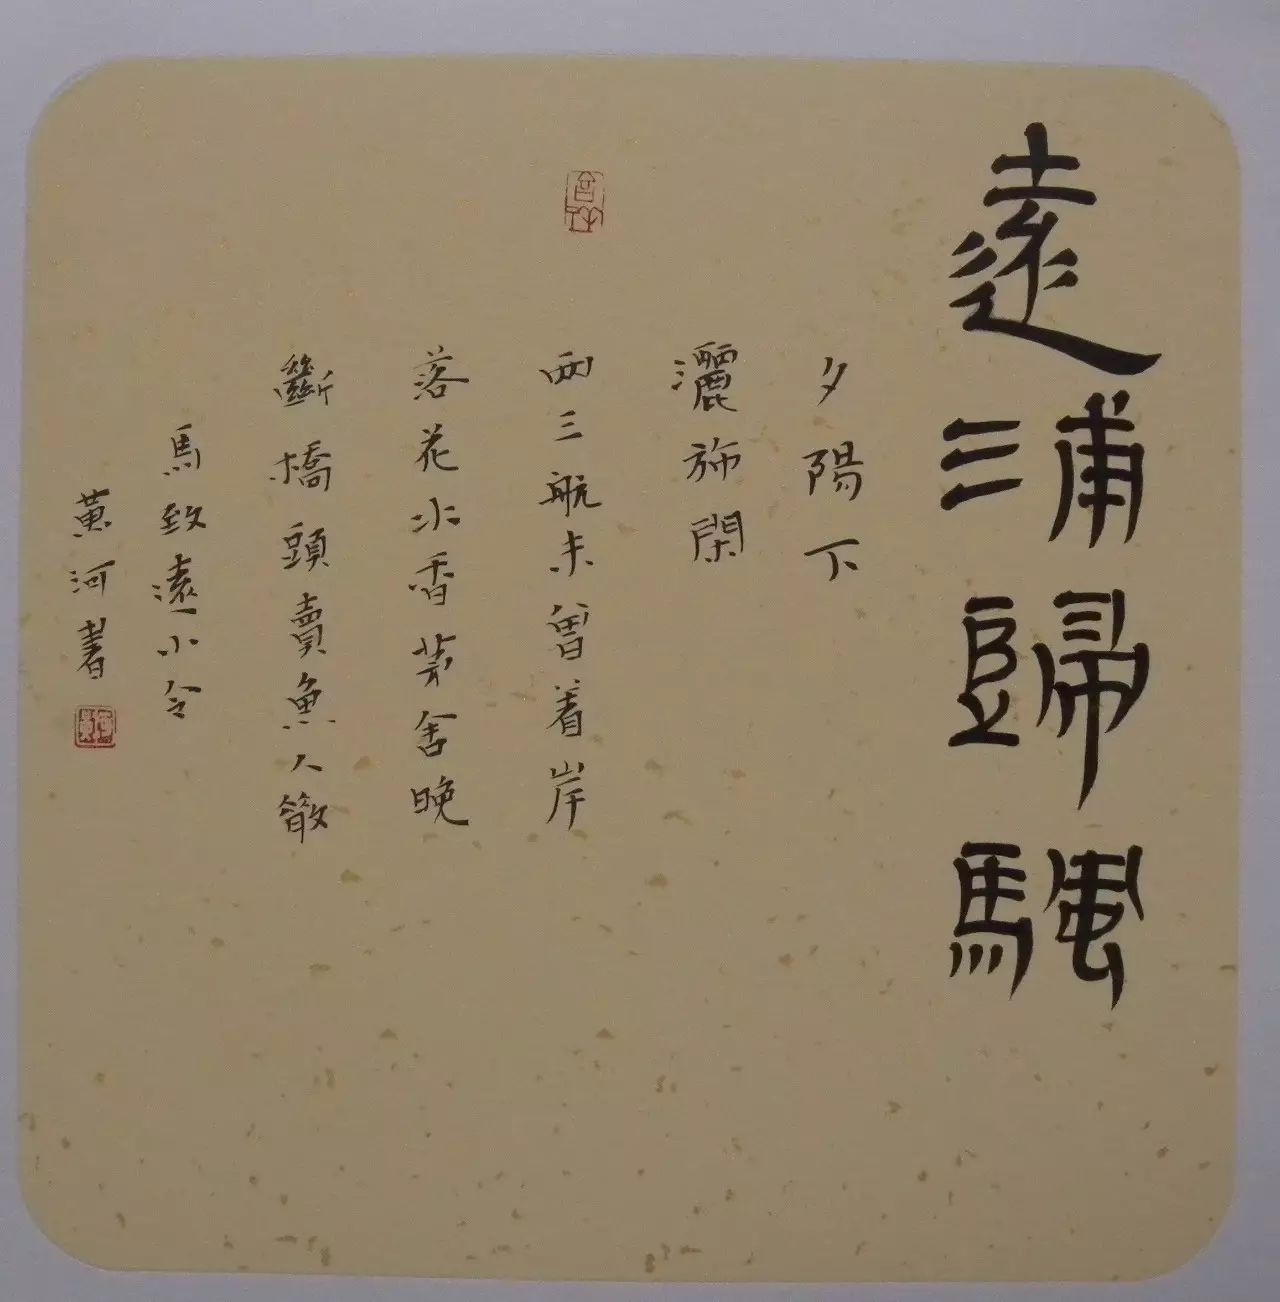 遠浦歸颿
夕陽下
灑斾閑
兩三航未曾着岸
落花水香茅舍晚
斷橋頭賣魚人散
馬致遠小令
黃河書